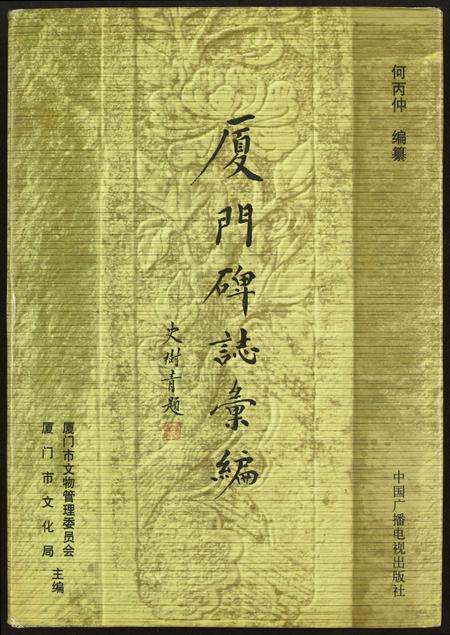 何丙仲 编纂
厦門碑誌彙編
史樹青题
厦门市文物管理委员会
厦门市文化局
主编
中国广播电视出版社